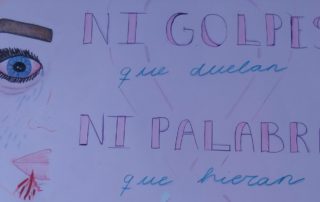 NI GOLPES
que duelan
NI PALABRA
que hieran